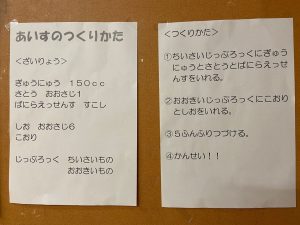 あいすのつくりかた
<ざいりょう>
ぎゅうにゅう　１５０ｃｃ
さとう　おおさじ１
ばにらえっせんす　すこし
しお　おおさじ６
こおり
じっぷろっく　ちいさいもの
おおきいもの
<つくりかた>
①ちいさいじっぷろっくにぎゅう
にゅうとさとうとばにらえっせ
んすをいれる。
②おおきいじっぷろっくにこおり
としおをいれる。
③５ふんふりつづける。
④かんせい！！